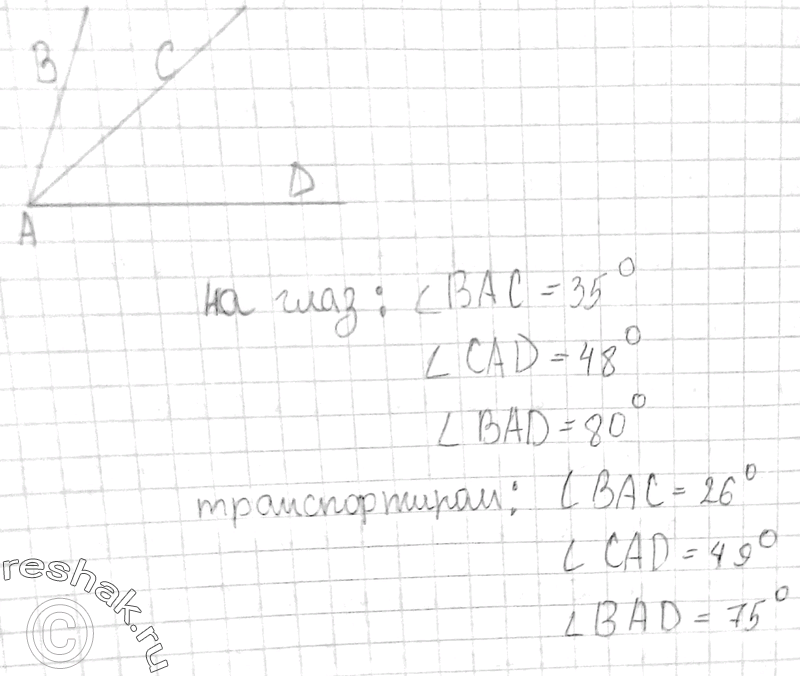 B C
D
A
на глаз: ∠BAC = 35°
∠CAD = 48°
∠BAD = 80°
транспортиром: ∠BAC = 26°
∠CAD = 49°
∠BAD = 75°
reshak.ru
©